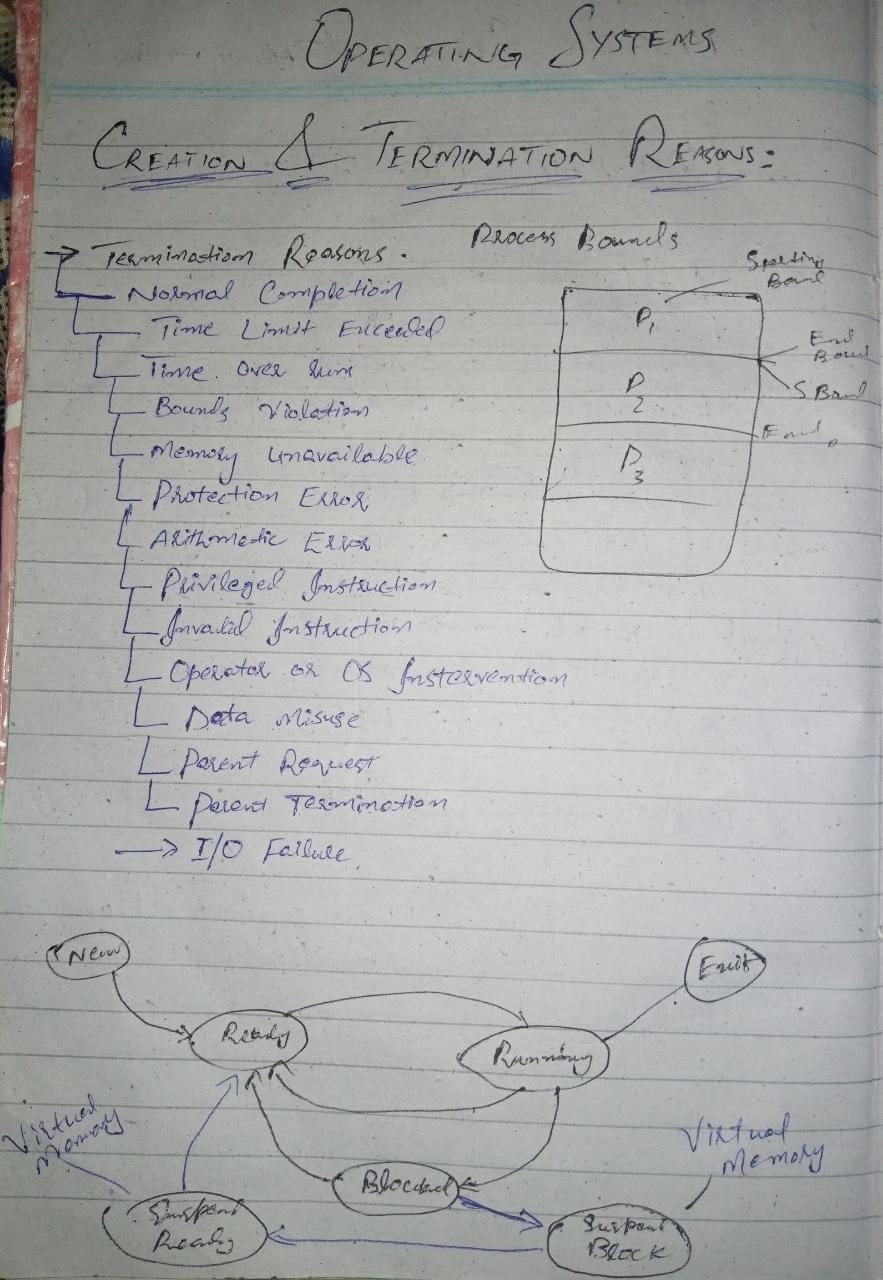 OPERATING SYSTEMS
CREATION & TERMINATION REASONS:
→ Termination Reasons.
Normal Completion
Time Limit Exceeded
Time Over Run
Bounds Violation
Memory Unavailable
Protection Error
Arithmedic Error
Privileged Instruction
Invalid Instruction
Operator or OS Instervention
Data Misuse
Parent Request
Parent Termination
→ I/O Failure
Process Bounds
P1
P2
P3
End
S
New
Exit
Ready
Running
Virtual
Memory
Virtual
Memory
Ready
BLOCK